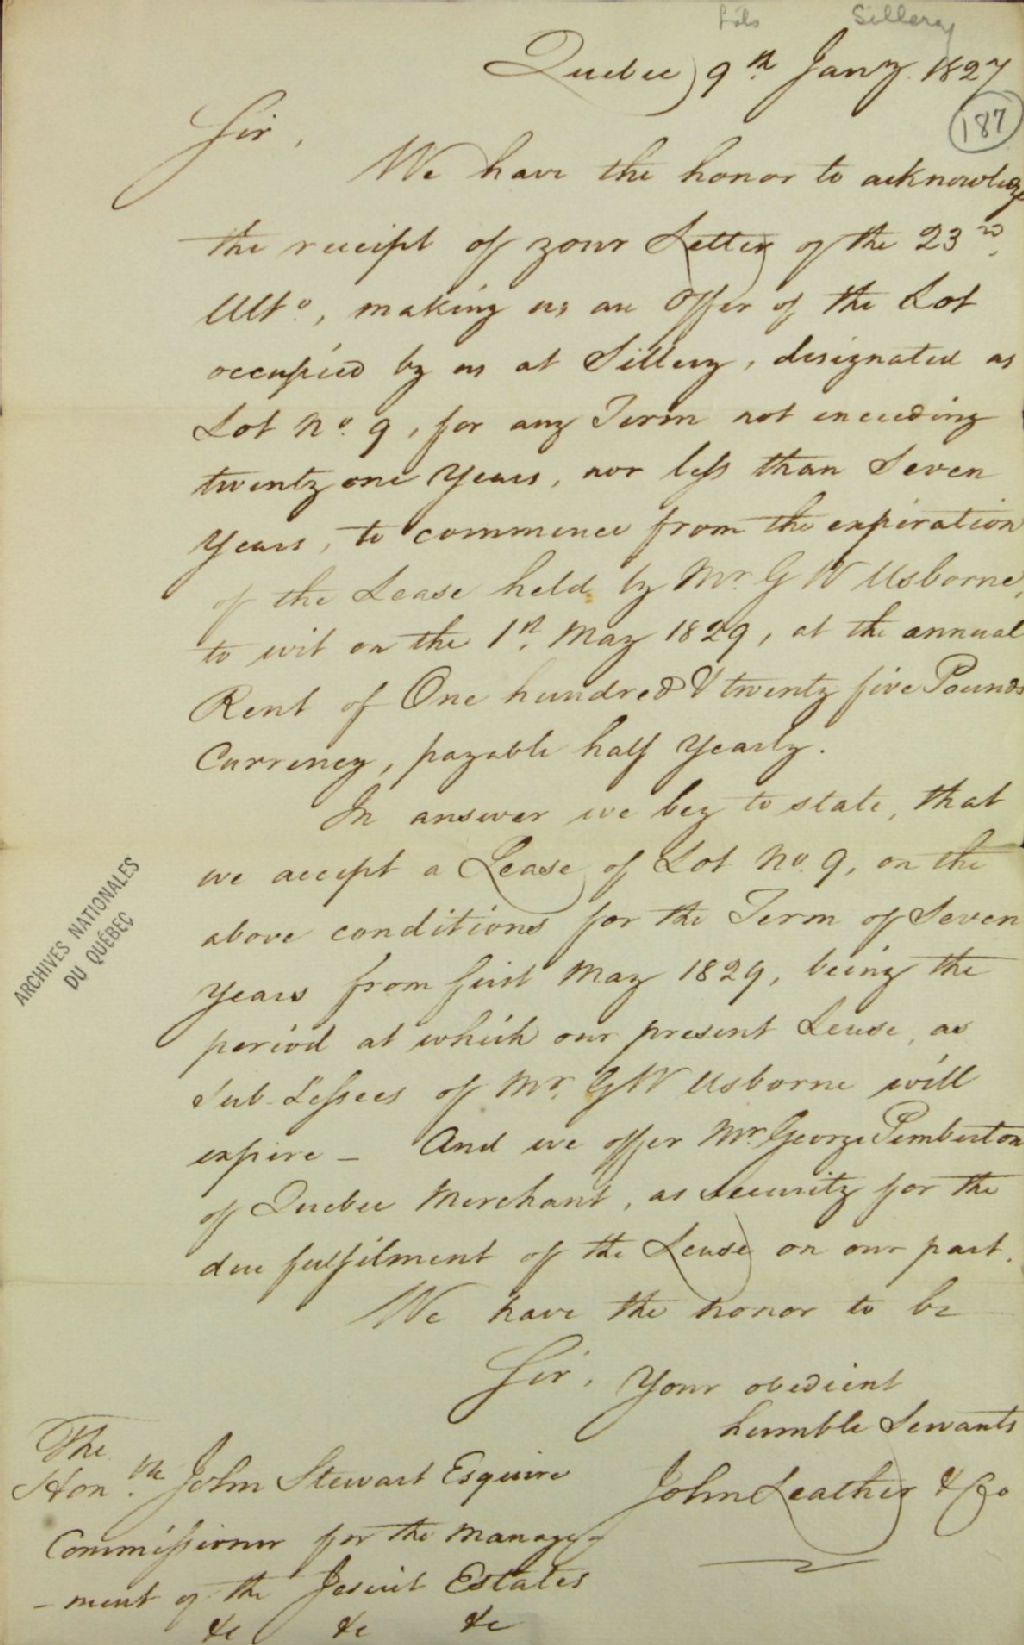 Lots Sillery
Quebec 9th Jany. 1827
187
Sir,
We have the honor to acknowledge
the receipt of your Letter of the 23rd.
Ulto, making us an Offer of the Lot
occupied by us at Sillery, designated as
Lot No. 9, for any Term not exceeding
twenty one Years, nor less than Seven
Years, to commence from the expiration
of the Lease held by Mr. G W Usborne,
to wit on the 1st. May 1829, at the annual
Rent of One hundred & twenty five Pounds
Currency, payable half Yearly.
In answer we beg to state, that
we accept a Lease of Lot No. 9, on the
above conditions for the Term of Seven
Years from first May 1829, being the
period at which our present Lease, as
Sub-Lessees of Mr. G W Usborne will
expire – And we offer Mr. George Pemberton
of Quebec Merchant, as security for the
due fulfilment of the Lease on our part.
We have the honor to be
Sir, Your obedient
humble Servants
John Leather & Co
The
Honble. John Stewart Esquire
Commissioner for the Manage-
-ment of the Jesuit Estates
&c &c &c
ARCHIVES NATIONALES
DU QUÉBEC